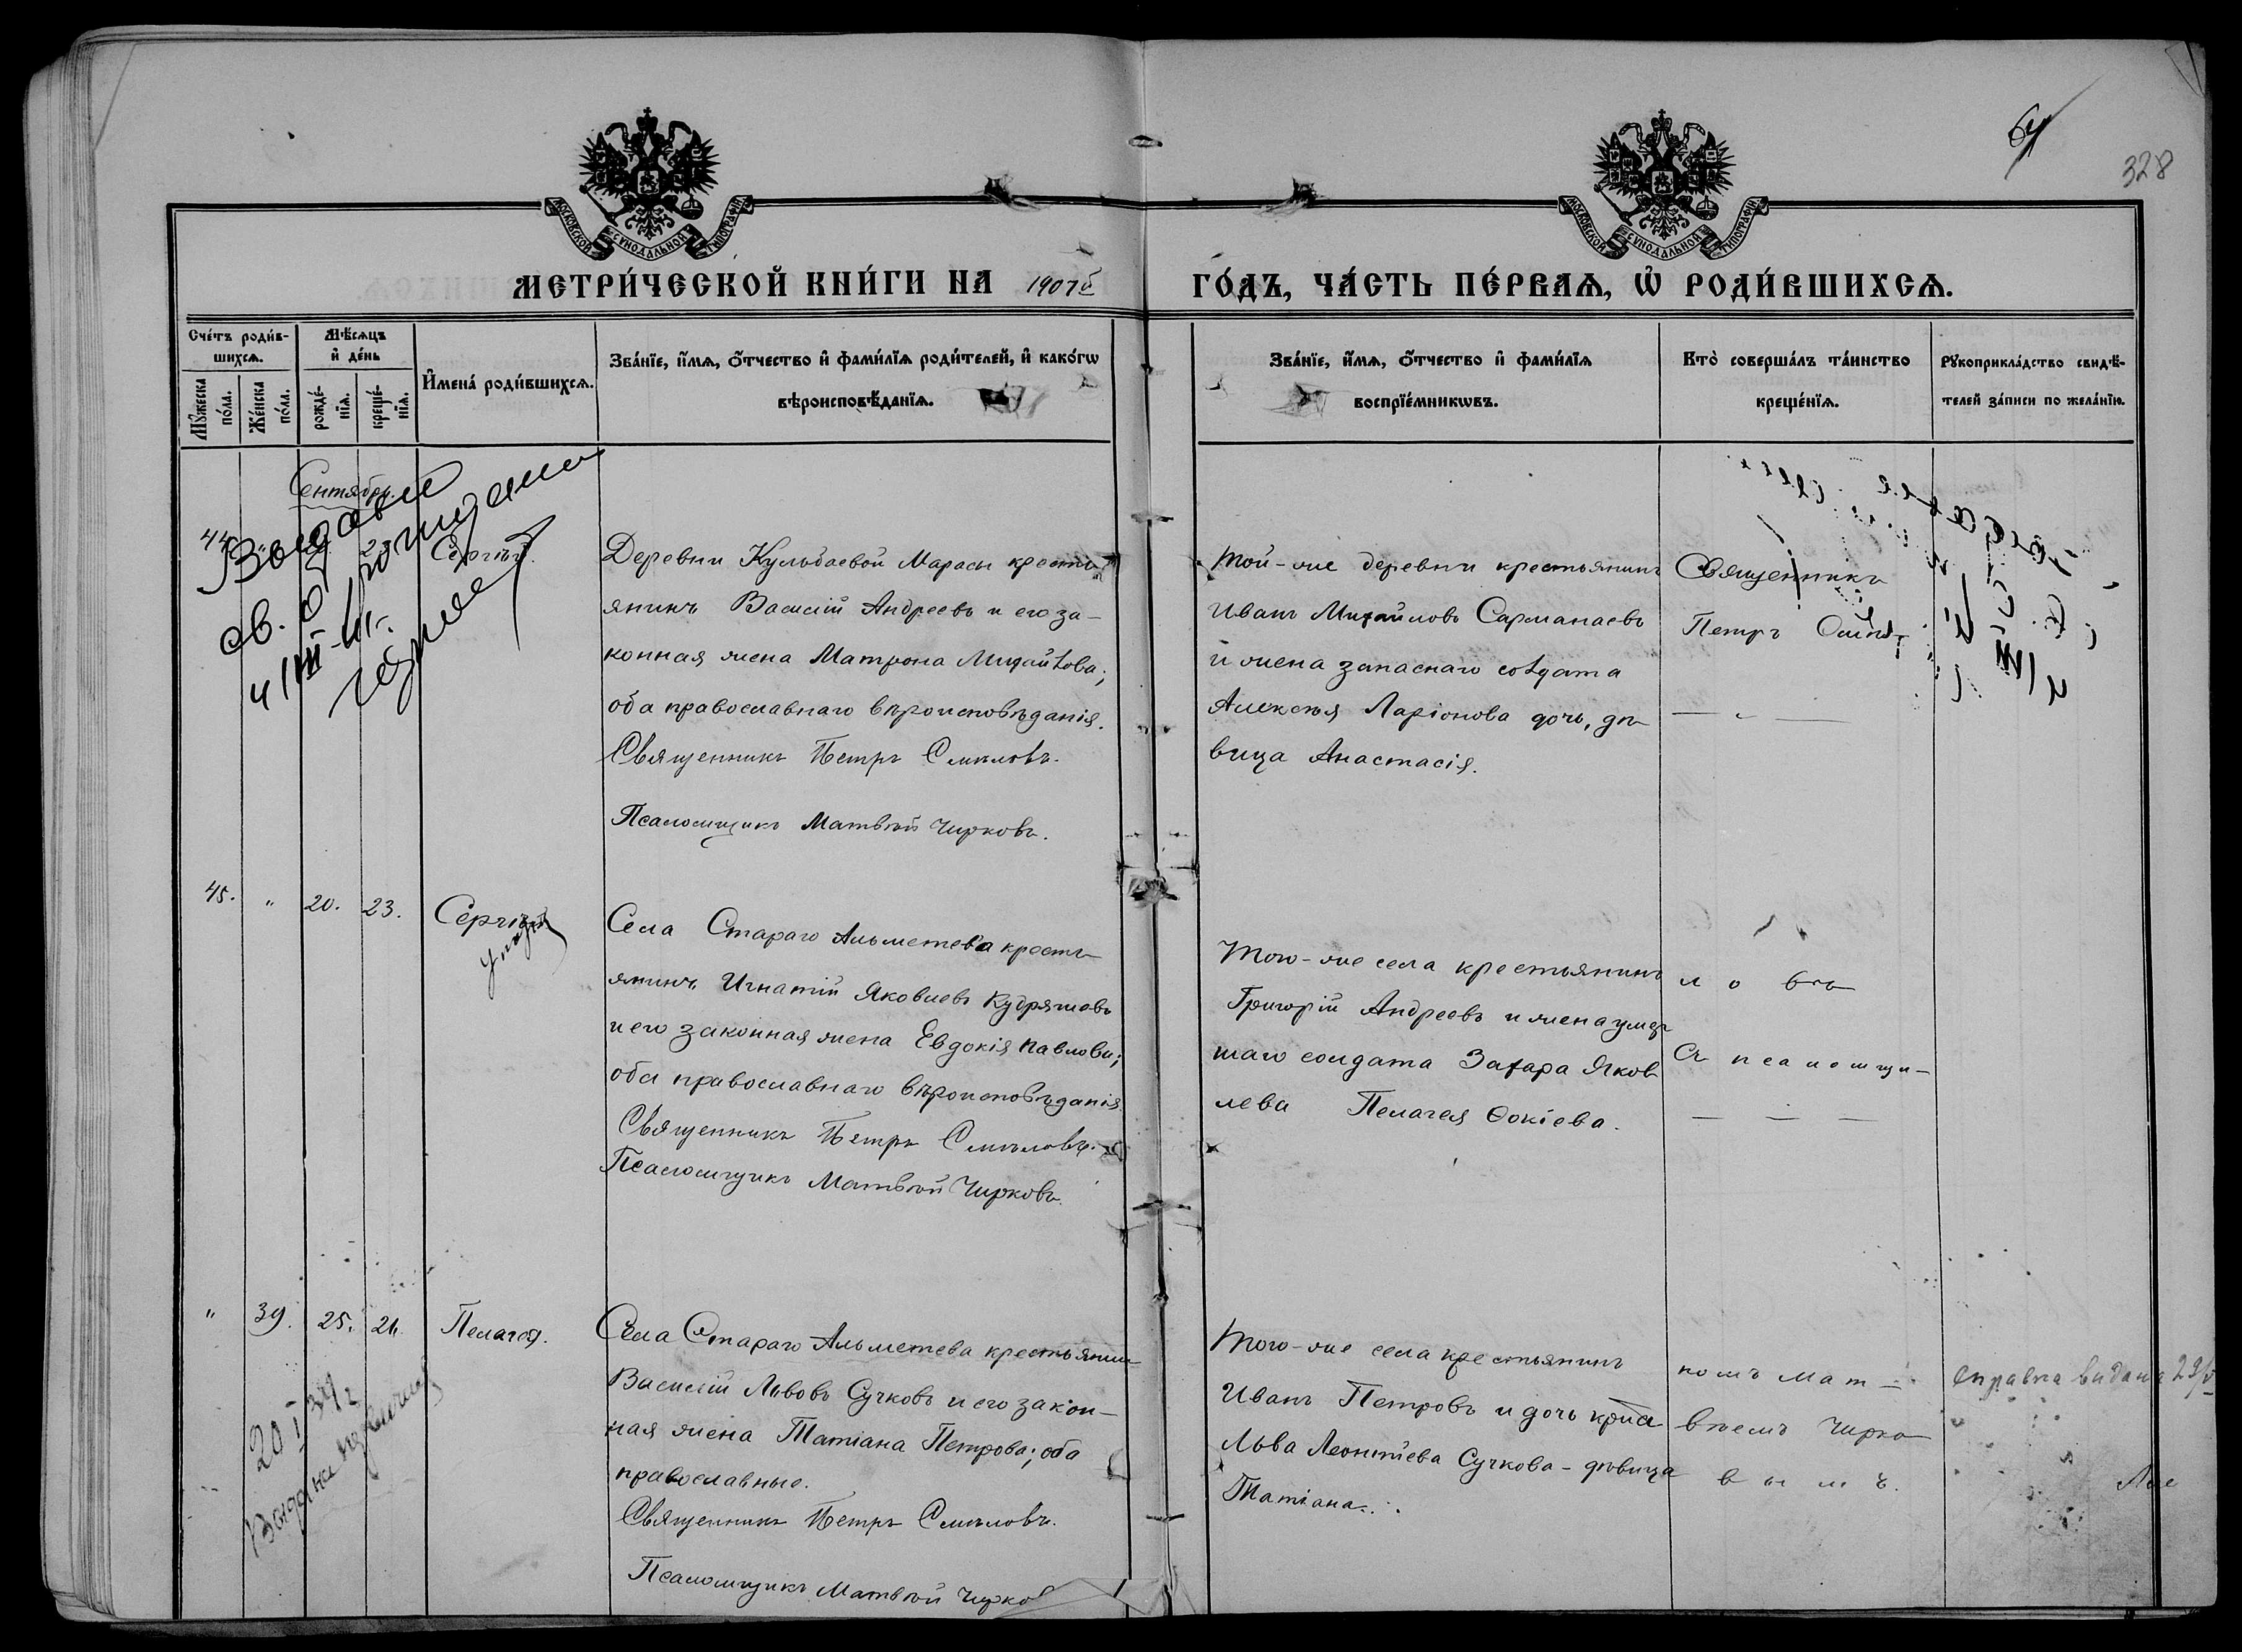 64
328
МОСКОВСКОЙ СѴНОДАЛЬНОЙ ТИПОГРАФІИ
МОСКОВСКОЙ СѴНОДАЛЬНОЙ ТИПОГРАФІИ
МЕТРИ́ЧЕСКОЙ КНИ́ГИ НА 1907й ГО́ДЪ, ЧА́СТЬ ПЕ́РВАѦ, Ѡ҆ РОДИ́ВШИХСѦ.
Сче́тъ роди́в-
шихсѧ.
Мꙋ́жеска по́ла.
Же́нска по́ла.
Мѣ́сѧцъ
и҆ де́нь
рожде́-
нїѧ.
креще́-
нїѧ.
И҆мена̀ роди́вшихсѧ.
Зва́нїе, и҆́мѧ, ѻ҆́тчество и҆ фами́лїѧ роди́телей, и҆ како́гѡ
вѣроисповѣ́данїѧ.
Зва́нїе, и҆́мѧ, ѻ҆́тчество и҆ фами́лїѧ
воспрїе́мникѡвъ.
Кто̀ соверша́лъ та́инство
креще́нїѧ.
Рꙋкоприкла́дство свидѣ́-
телей за́писи по жела́нїю.
Сентябрь.
44. Сергій.
Деревни Кульбаевой Марасы кресть
янинъ Василій Андреевъ и его за-
конная жена Матрона Михайлова;
оба православнаго вѣроисповѣданія.
Священникъ Петръ Смѣловъ.
Псаломщикъ Матвѣй Чирковъ.
Той-же деревни крестьянинъ
Иванъ Михайловъ Сарманаевъ
и жена запаснаго солдата
Алексѣя Ларіонова дочь, дѣ
вица Анастасія.
Священникъ
Петръ Смѣ-
45. " 20. 23. Сергій
умеръ
Села Стараго Альметева кресть
янинъ Игнатій Яковлевъ Кудряшовъ
и его законная жена Евдокія Павлова;
оба православнаго вѣроисповѣданія.
Священникъ Петръ Смѣловъ.
Псаломщикъ Матвѣй Чирковъ.
Того-же села крестьянинъ
Григорій Андреевъ и жена умер
шаго солдата Захара Яков
лева Пелагея Ѳокіева.
ловъ
Съ псаломщи-
" 39. 25. 26. Пелагея.
Села Стараго Альметева крестьянин
Василій Львовъ Сучковъ и его закон-
ная жена Татіана Петрова; оба
православные.
Священникъ Петръ Смѣловъ.
Псаломщикъ Матвѣй Чирко
Того-же села крестьянинъ
Иванъ Петровъ и дочь кр-на
Льва Леонтіева Сучкова - дѣвица
Татіана.
комъ Мат-
вѣемъ Чирко
вымъ.
справка видана 29/V